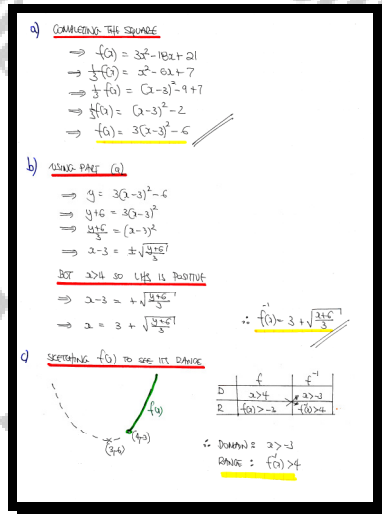 a) COMPLETING THE SQUARE
⇒ f(x) = 3x² - 18x + 21
⇒ ⅓f(x) = x² - 6x + 7
⇒ ⅓f(x) = (x-3)² - 9 + 7
⇒ ⅓f(x) = (x-3)² - 2
⇒ f(x) = 3(x-3)² - 6
b) USING PART (a)
⇒ y = 3(x-3)² - 6
⇒ y+6 = 3(x-3)²
⇒ (y+6)/3 = (x-3)²
⇒ x-3 = ±√((y+6)/3)
BUT x>4 SO LHS IS POSITIVE
⇒ x-3 = +√((y+6)/3)
⇒ x = 3 + √((y+6)/3)
∴ f⁻¹(x) = 3 + √((x+6)/3)
c) SKETCHING f(x) TO SEE ITS RANGE
f(x)
(4,-3)
(3,-6)
f f⁻¹
D x>4 x>-3
R f(x)>-3 f⁻¹(x)>4
∴ DOMAIN: x>-3
RANGE: f⁻¹(x)>4